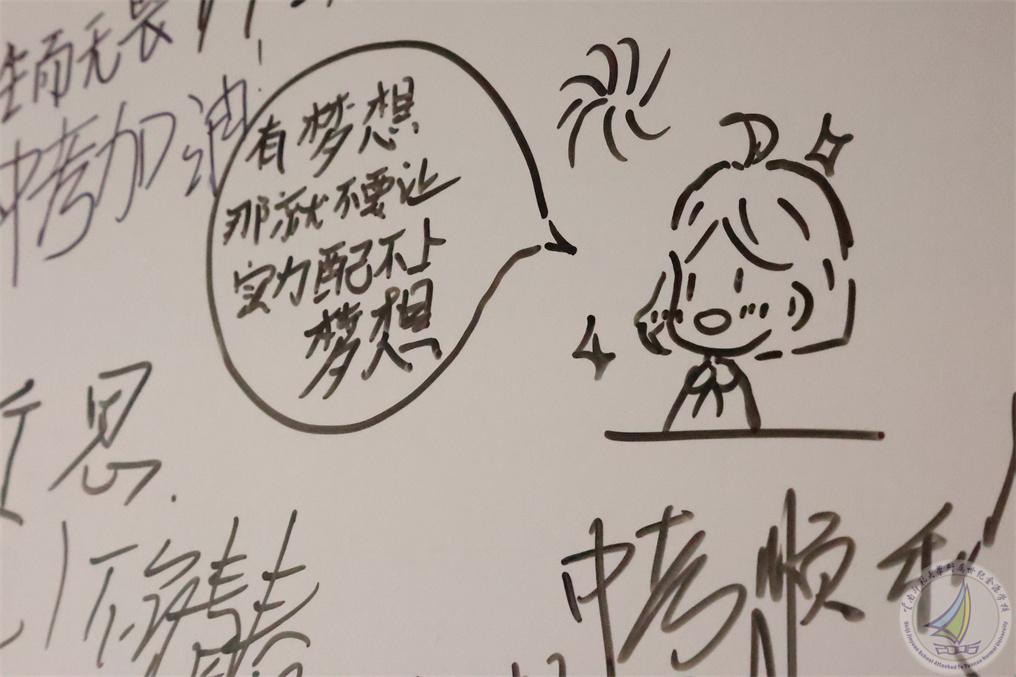 生而无畏
中考加油!
有梦想
那就不要让
实力配不上
梦想
思.
不负青春
中考顺利